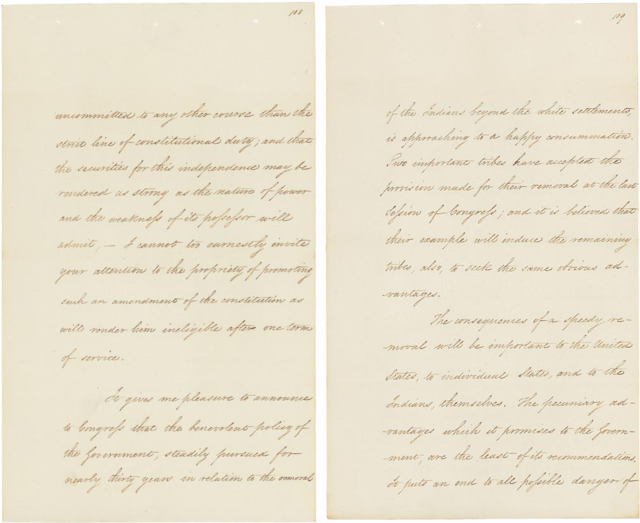 108
uncommitted to any other course than the
strict line of constitutional duty; and that
the securities for this independence may be
rendered as strong as the nature of power
and the weakness of its possessor will
admit, — I cannot too earnestly invite
your attention to the propriety of promoting
such an amendment of the constitution as
will render him ineligible after one term
of service.
It gives me pleasure to announce
to Congress that the benevolent policy of
the Government, steadily pursued for
nearly thirty years in relation to the removal
109
of the Indians beyond the white settlements,
is approaching to a happy consummation.
Two important tribes have accepted the
provision made for their removal at the last
Session of Congress; and it is believed that
their example will induce the remaining
tribes, also, to seek the same obvious ad-
vantages.
The consequences of a speedy re-
moval will be important to the United
States, to individual States, and to the
Indians, themselves. The pecuniary ad-
vantages which it promises to the Govern-
ment, are the least of its recommendations.
It puts an end to all possible danger of